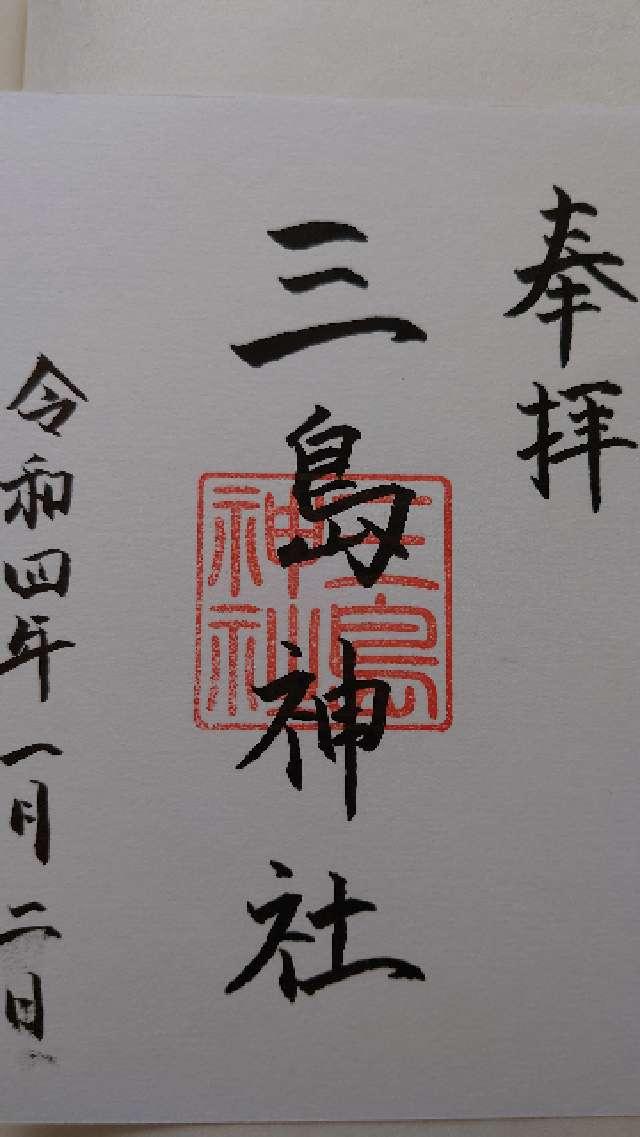 奉拝
三島神社
三島神社
令和四年一月二日